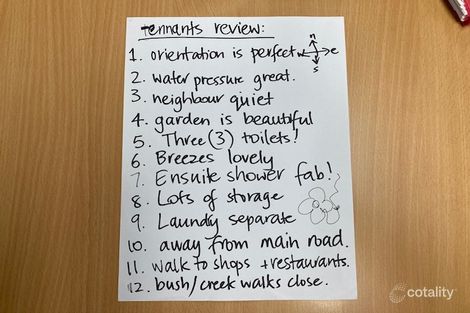 Tennants review:
1. orientation is perfect n w e s
2. water pressure great.
3. neighbour quiet
4. garden is beautiful
5. Three (3) toilets!
6. Breezes lovely
7. Ensuite shower fab!
8. Lots of storage
9. Laundry separate
10. away from main road.
11. walk to shops + restaurants.
12. bush/creek walks close.
cotality